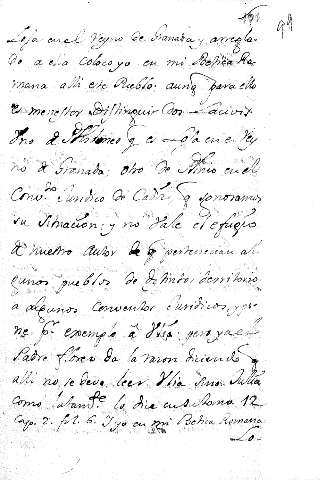 99
Loja en el Reyno de Granada y arregla-
do a ella coloco yo en mi Betica Ro
mana alli este Pueblo. aunq para ello
es menester distinguir dos
Uno de q es en el Rey
no de Granada; otro de Plinio en el
Conv.to Juridico de Cadiz q ignoramos
su situacion; y no vale el efugio
de nuestro Autor de q pertenecian al
gunos pueblos de distinto territorio
a algunos Conventos Juridicos, y po
ne p.r exemplo à Ulia; pero ya el
Padre florez da la razon diciendo q
alli no se deve leer Ulia sino Julia
como lo dice en su tomo 12
Cap. 2. fol. 6. Y yo en mi Betica Romana
Lo-